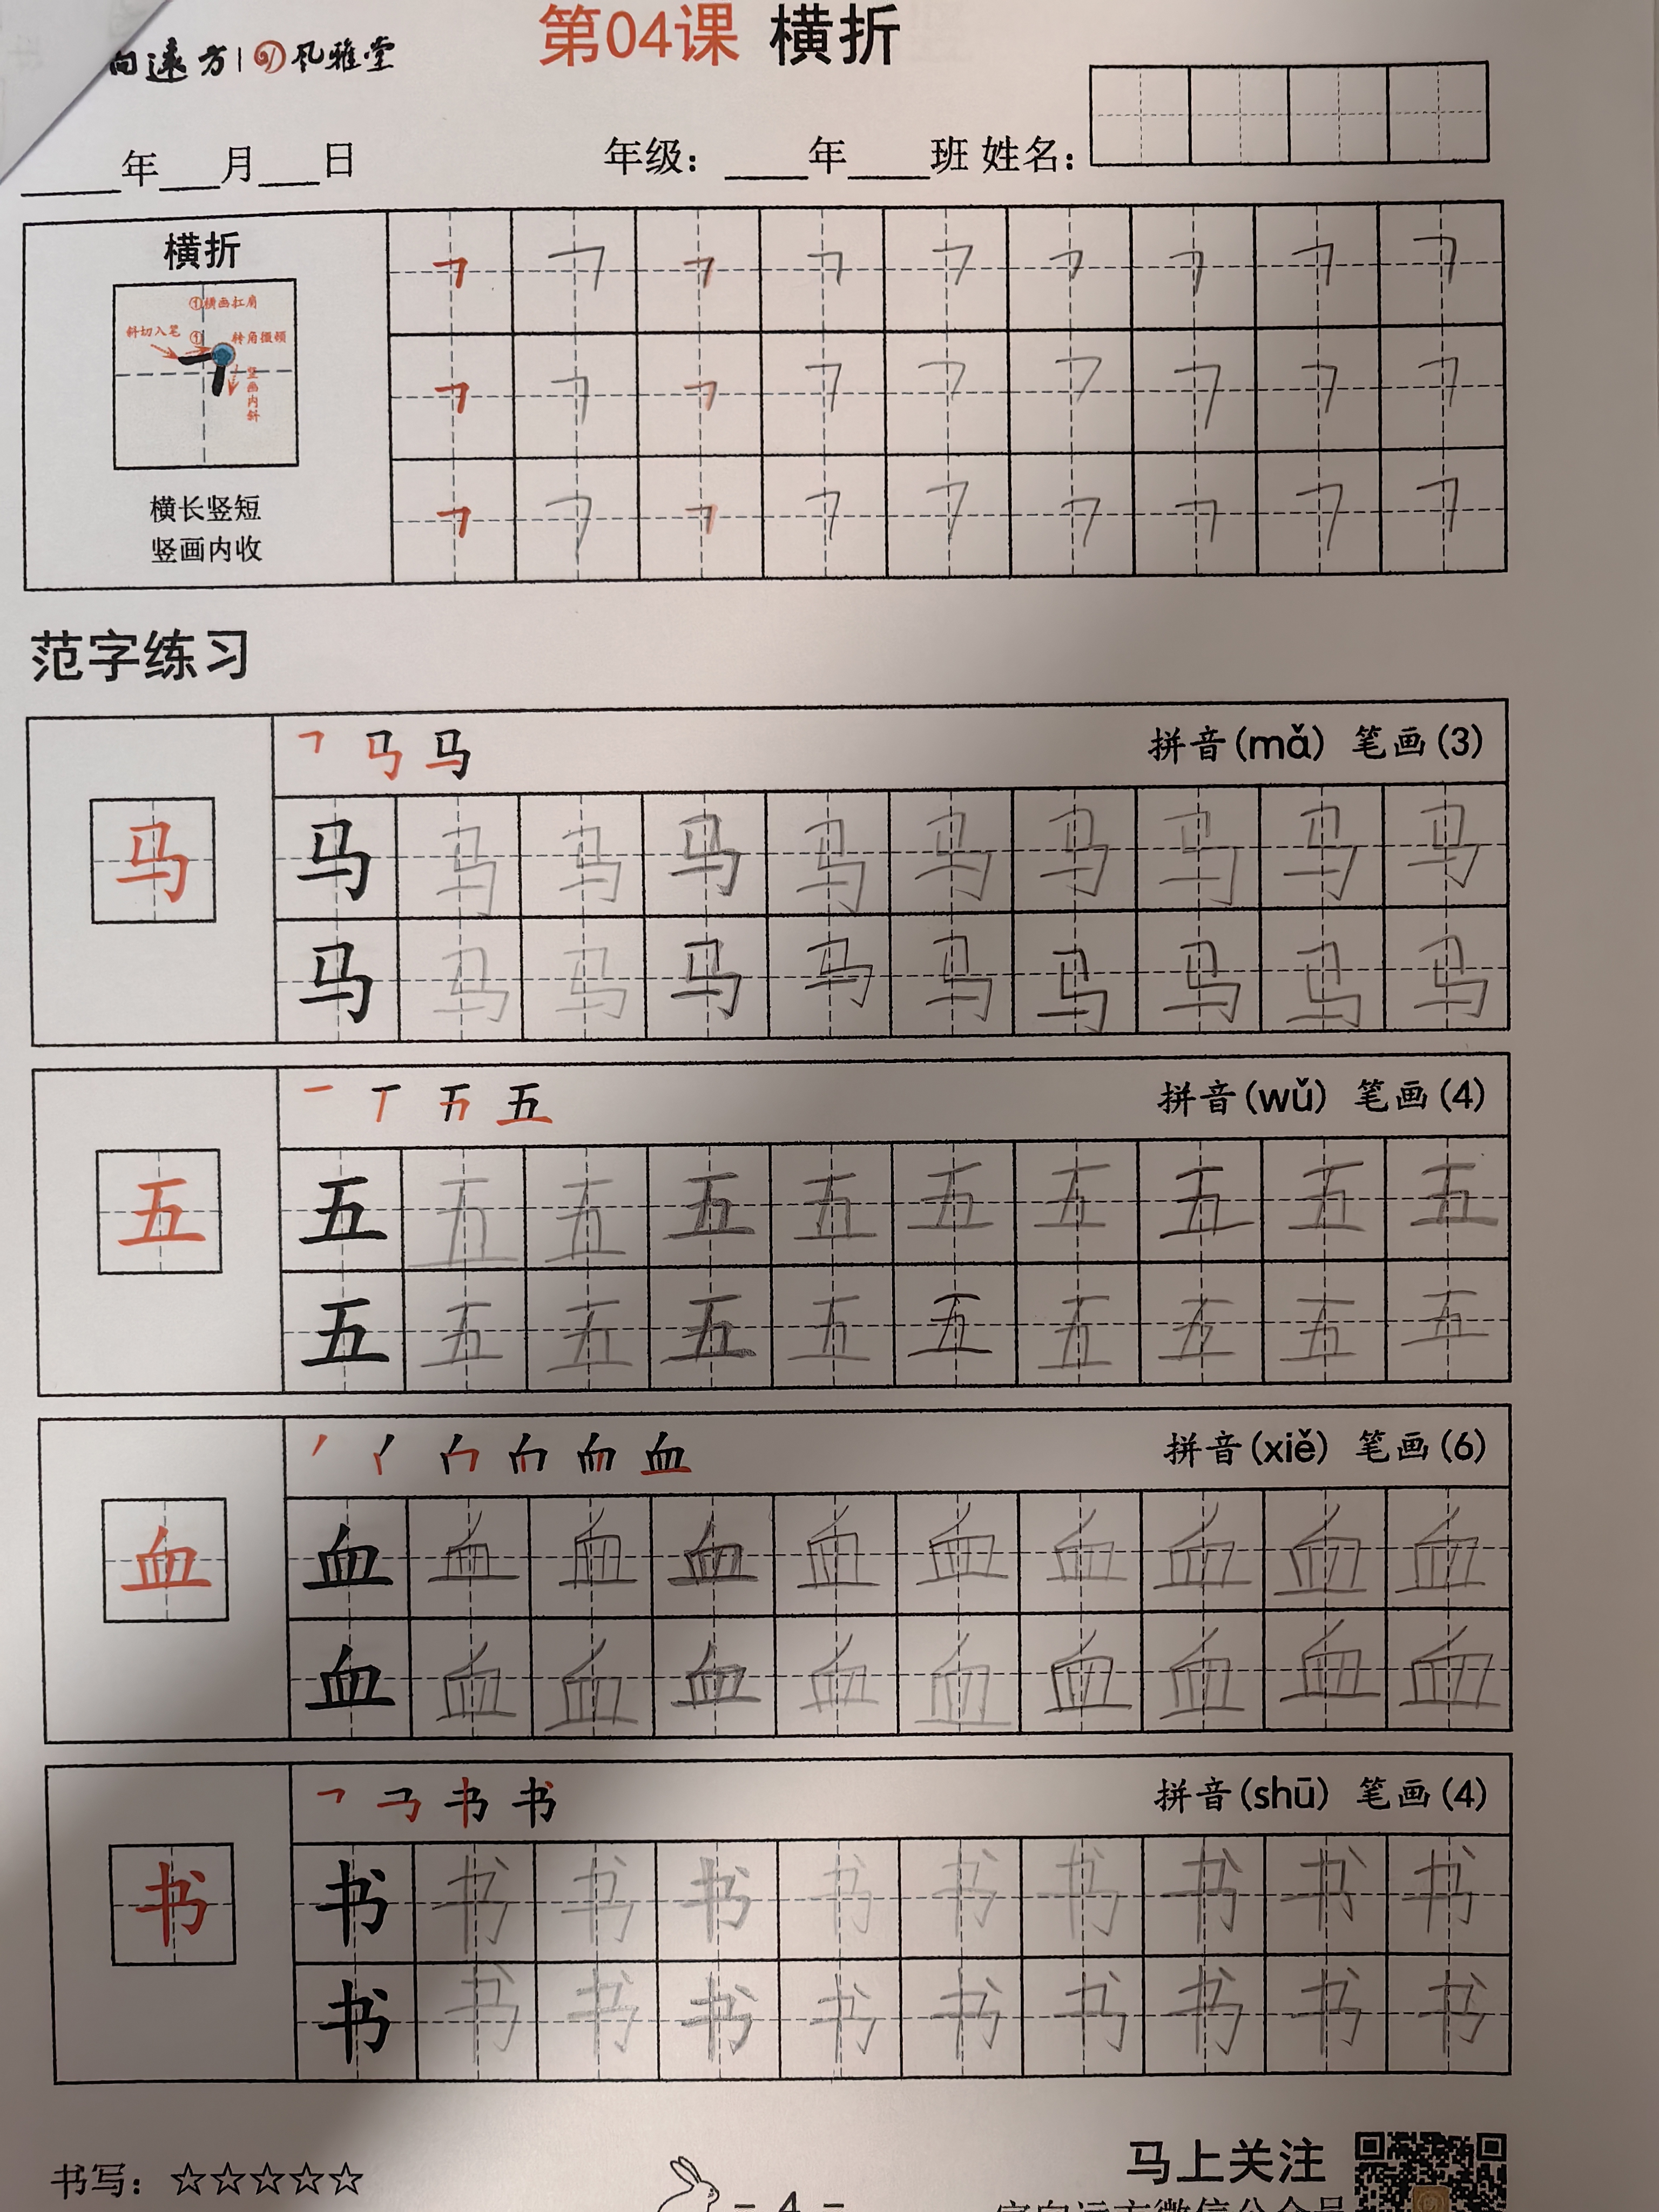 向远方 风雅堂
第04课 横折
年 月 日 年级： 年 班 姓名：
横折
①横画扛肩
斜切入笔 ① 转角撮顿
竖画内斜
横长竖短
竖画内收
范字练习
拼音(mǎ) 笔画(3)
马
马 马 马 马 马 马 马 马 马 马
马 马 马 马 马 马 马 马 马 马
拼音(wǔ) 笔画(4)
五
五 五 五 五 五 五 五 五 五 五
五 五 五 五 五 五 五 五 五 五
拼音(xiě) 笔画(6)
血
血 血 血 血 血 血 血 血 血 血
血 血 血 血 血 血 血 血 血 血
拼音(shū) 笔画(4)
书
书 书 书 书 书 书 书 书 书 书
书 书 书 书 书 书 书 书 书 书
书写：☆☆☆☆☆
- 4 -
马上关注